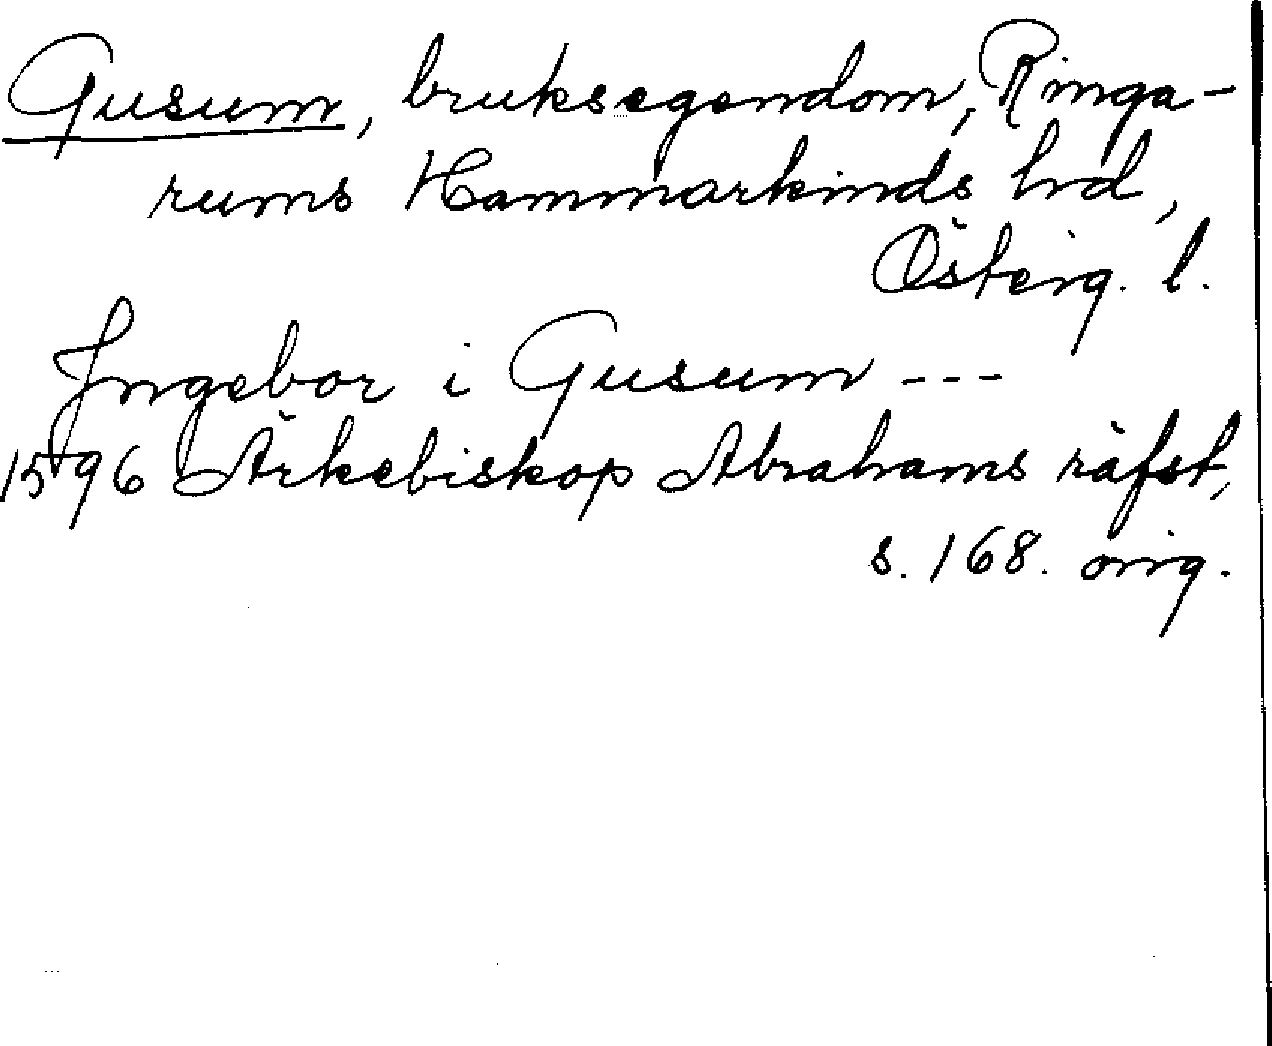 Gusum, bruksegendom, Ringa-
rums Hammarkinds hd,
Österg. l.
Ingebor i Gusum ---
1596 Ärkebiskop Abrahams räfst,
s. 168. orig.